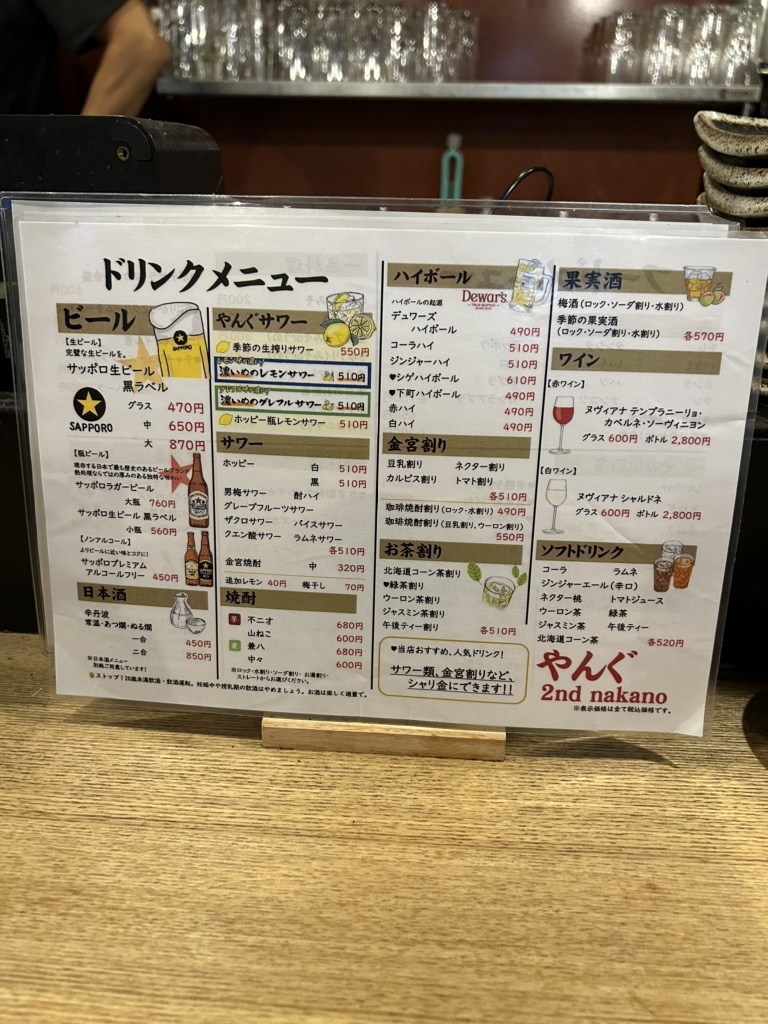 ドリンクメニュー
ビール
【生ビール】
完璧な生ビールを。
サッポロ生ビール
黒ラベル
SAPPORO
SAPPORO
グラス 470円
中 650円
大 870円
【瓶ビール】
現存する日本で最も歴史のあるビールブランド
熱処理ならではの厚みのある独特な味わい
サッポロラガービール
大瓶 760円
サッポロ生ビール 黒ラベル
小瓶 560円
【ノンアルコール】
よりビールに近い味とコクに!
サッポロプレミアム
アルコールフリー 450円
日本酒
辛丹波
常温・あつ燗・ぬる燗
一合 450円
二合 850円
※日本酒メニュー
別紙ご用意しています!
やんぐサワー
季節の生搾りサワー 550円
濃いめのレモンサワー 510円
濃いめのグレフルサワー 510円
ホッピー瓶レモンサワー 510円
サワー
ホッピー 白 510円
黒 510円
男梅サワー 酎ハイ
グレープフルーツサワー
ザクロサワー バイスサワー
クエン酸サワー ラムネサワー
各510円
金宮焼酎 中 320円
追加レモン 40円 梅干し 70円
焼酎
芋 不二才 680円
山ねこ 600円
麦 兼八 680円
中々 600円
※ロック・水割り・ソーダ割り・お湯割り・
ストレートからお選びください。
ストップ!20歳未満飲酒・飲酒運転。妊娠中や授乳期の飲酒はやめましょう。お酒は楽しく適量で。
ハイボール
ハイボールの起源
Dewar's
デュワーズ
ハイボール 490円
コーラハイ 510円
ジンジャーハイ 510円
♥シゲハイボール 610円
♥下町ハイボール 490円
赤ハイ 490円
白ハイ 490円
金宮割り
豆乳割り ネクター割り
カルピス割り トマト割り
各510円
珈琲焼酎割り(ロック・水割り) 490円
珈琲焼酎割り(豆乳割り、ウーロン割り)
550円
お茶割り
北海道コーン茶割り
♥緑茶割り
ウーロン茶割り
ジャスミン茶割り
午後ティー割り 各510円
♥当店おすすめ、人気ドリンク!
サワー類、金宮割りなど、
シャリ金にできます!!
果実酒
梅酒(ロック・ソーダ割り・水割り)
季節の果実酒
(ロック・ソーダ割り・水割り)
各570円
ワイン
【赤ワイン】
ヌヴィアナ テンプラニーリョ・
カベルネ・ソーヴィニヨン
グラス 600円 ボトル 2,800円
【白ワイン】
ヌヴィアナ シャルドネ
グラス 600円 ボトル 2,800円
ソフトドリンク
コーラ ラムネ
ジンジャーエール(辛口)
ネクター桃 トマトジュース
ウーロン茶 緑茶
ジャスミン茶 午後ティー
北海道コーン茶 各520円
やんぐ
2nd nakano
※表示価格は全て税込価格です。